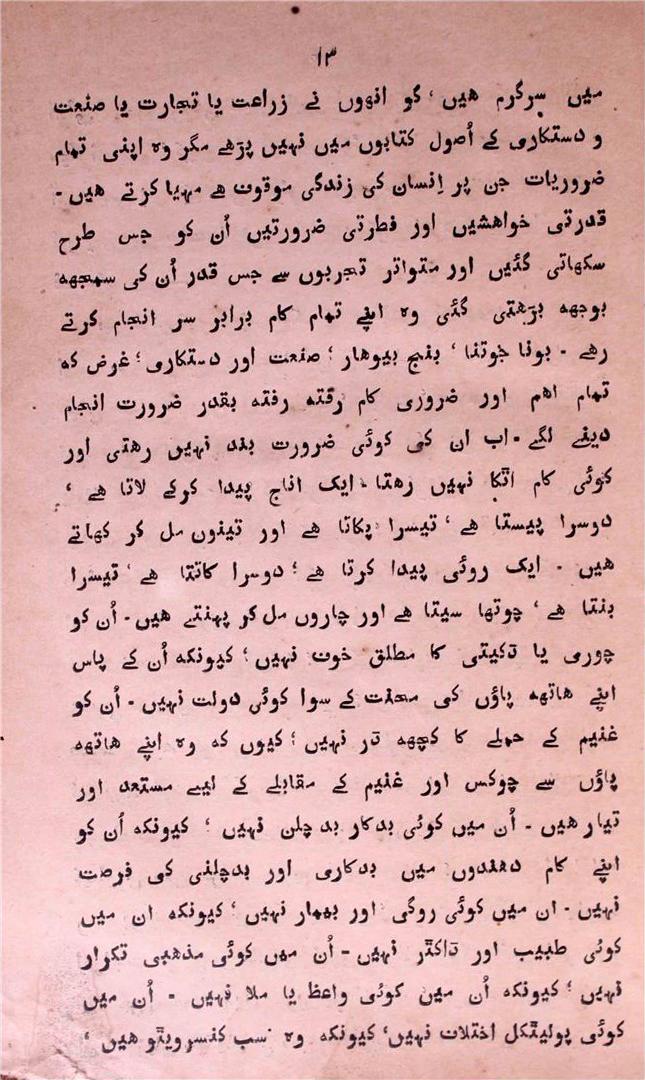 ۱۳
میں سرگرم هیں، گو انھوں نے زراعت یا تجارت یا صنعت
و دستکاری کے اُصول کتابوں میں نہیں پڑھے مگر وہ اپنی تمام
ضروریات جن پر اِنسان کی زندگی موقوف هے مہیا کرتے هیں -
قدرتی خواهشیں اور فطرتی ضرورتیں اُن کو جس طرح
سکھاتی گئیں اور متواتر تجربوں سے جس قدر اُن کی سمجھه
بوجھه بڑھتی گئی وہ اپنے تمام کام برابر سر انجام کرتے
رهے - بونا جوتنا، بنج بیوهار؛ صنعت اور دستکاری؛ غرض که
تمام اهم اور ضروری کام رفته رفته بقدر ضرورت انجام
دینے لگے - اب ان کی کوئی ضرورت بند نہیں رهتی اور
کوئی کام اٹکا نہیں رهتا - ایک اناج پیدا کرکے لاتا هے،
دوسرا پیستا هے، تیسرا پکاتا هے اور تینوں مل کر کھاتے
هیں - ایک روئی پیدا کرتا هے؛ دوسرا کاتتا هے، تیسرا
بنتا هے، چوتھا سیتا هے اور چاروں مل کر پہنتے هیں - اُن کو
چوری یا ڈکیتی کا مطلق خوف نہیں؛ کیونکه اُن کے پاس
اپنے هاتھه پاؤں کی محنت کے سوا کوئی دولت نہیں - اُن کو
غنیم کے حملے کا کچھه ڈر نہیں؛ کیوں که وہ اپنے هاتھه
پاؤں سے چوکس اور غنیم کے مقابلے کے لیے مستعد اور
تیار هیں - اُن میں کوئی بدکار بد چلن نہیں؛ کیونکه اُن کو
اپنے کام دھندوں میں بدکاری اور بدچلنی کی فرصت
نہیں - ان میں کوئی روگی اور بیمار نہیں، کیونکه ان میں
کوئی طبیب اور ڈاکٹر نہیں - اُن میں کوئی مذهبی تکرار
نہیں؛ کیونکه اُن میں کوئی واعظ یا ملا نہیں - اُن میں
کوئی پولیٹکل اختلاف نہیں، کیونکه وہ سب کنسرویٹو هیں،